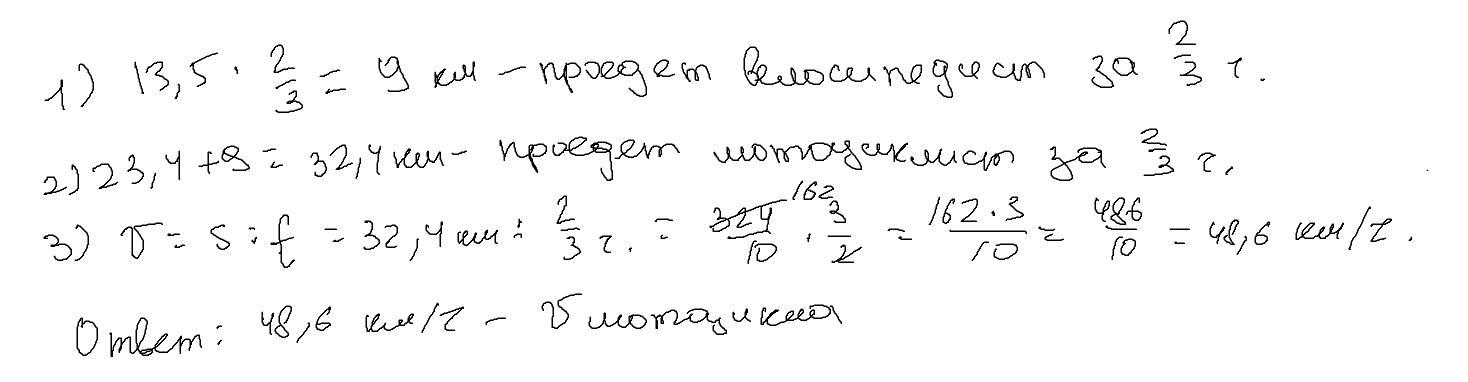 1) 13,5 · 2/3 = 9 км – проедет велосипедист за 2/3 ч.
2) 23,4 + 9 = 32,4 км – проедет мотоциклист за 2/3 ч.
3) v = s : t = 32,4 км : 2/3 ч. = 324/10 162 · 3/2 = 162 · 3/10 = 486/10 = 48,6 км/ч.
Ответ: 48,6 км/ч – v мотоцикла